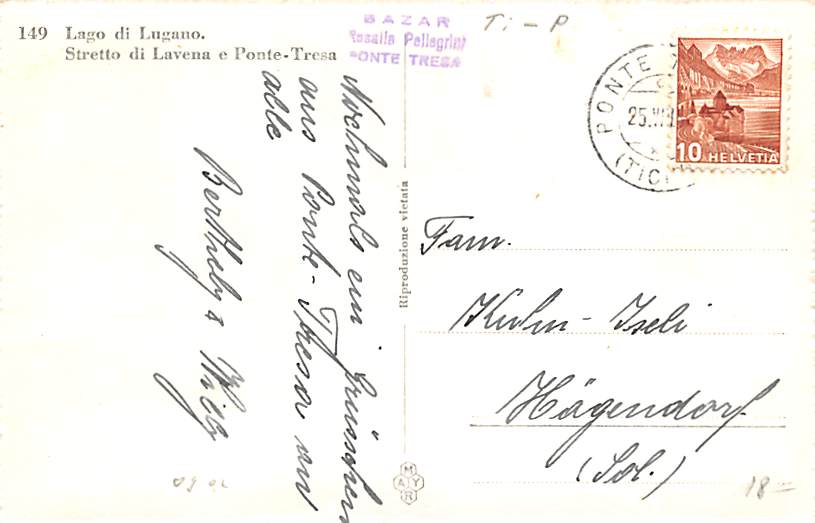 149 Lago di Lugano.
Stretto di Lavena e Ponte-Tresa
BAZAR
Rosalia Pellegrini
PONTE TRESA
Ti - P
PONTE
25.VII
(TICI
10 HELVETIA
Nochmals ein Grüsschen
aus Ponte-Tresa an
alle
Berthely & Willy
Riproduzione vietata
Fam.
Kuhn-Iseli
Hägendorf
(Sol.)
MAYR
18 =